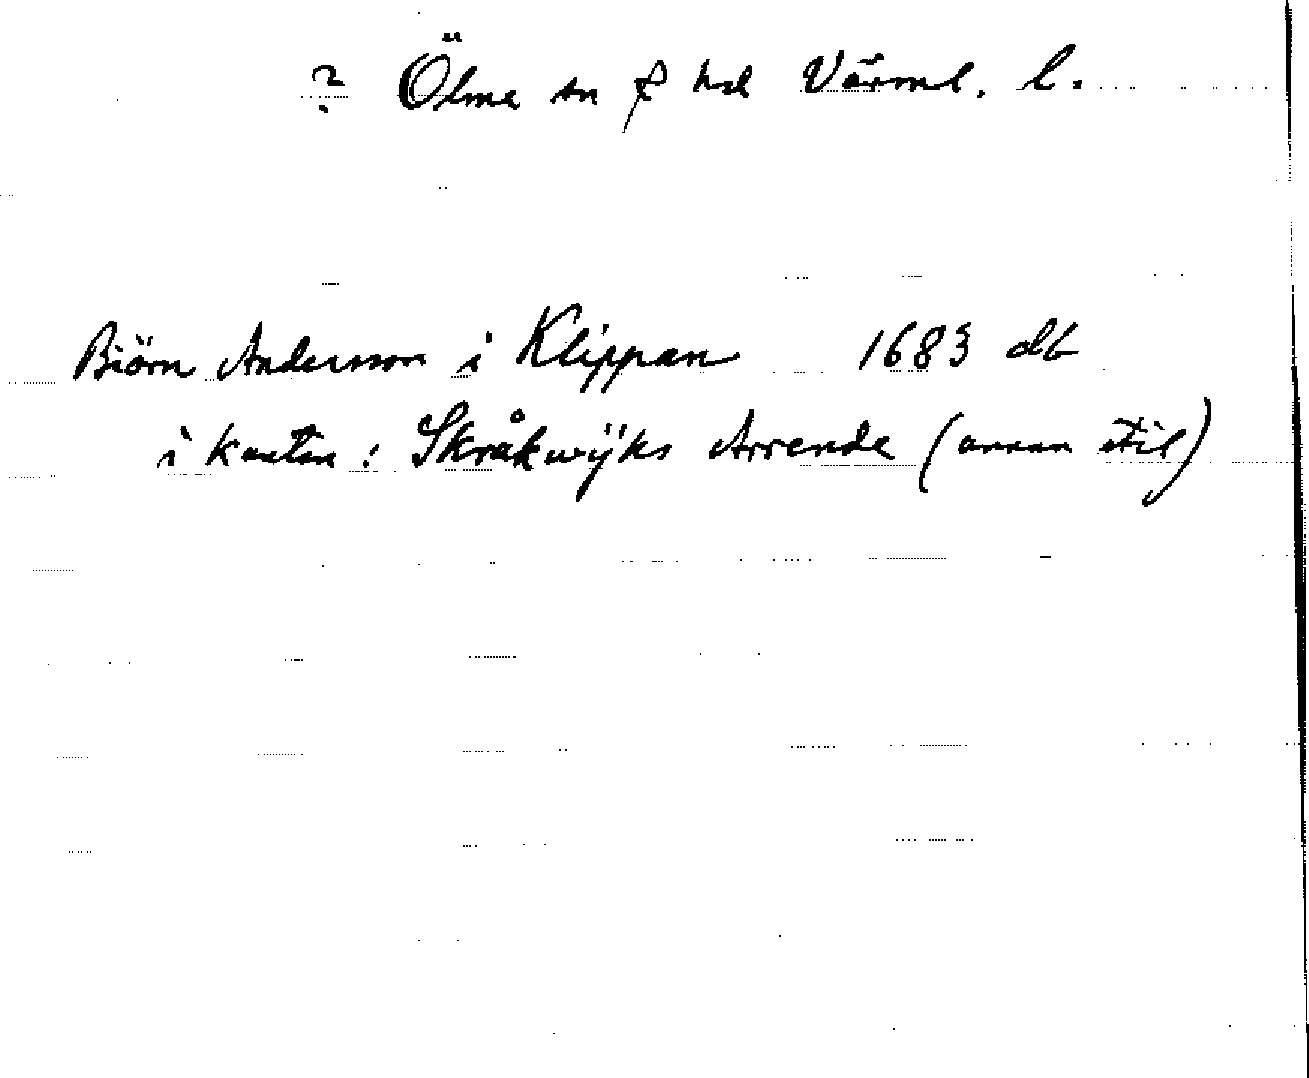 ? Ölme sn o hd Värml. l.
Biörn Andersson i Klippan 1683 db
i kanten: Skråkwÿks Arrende (annan stil)